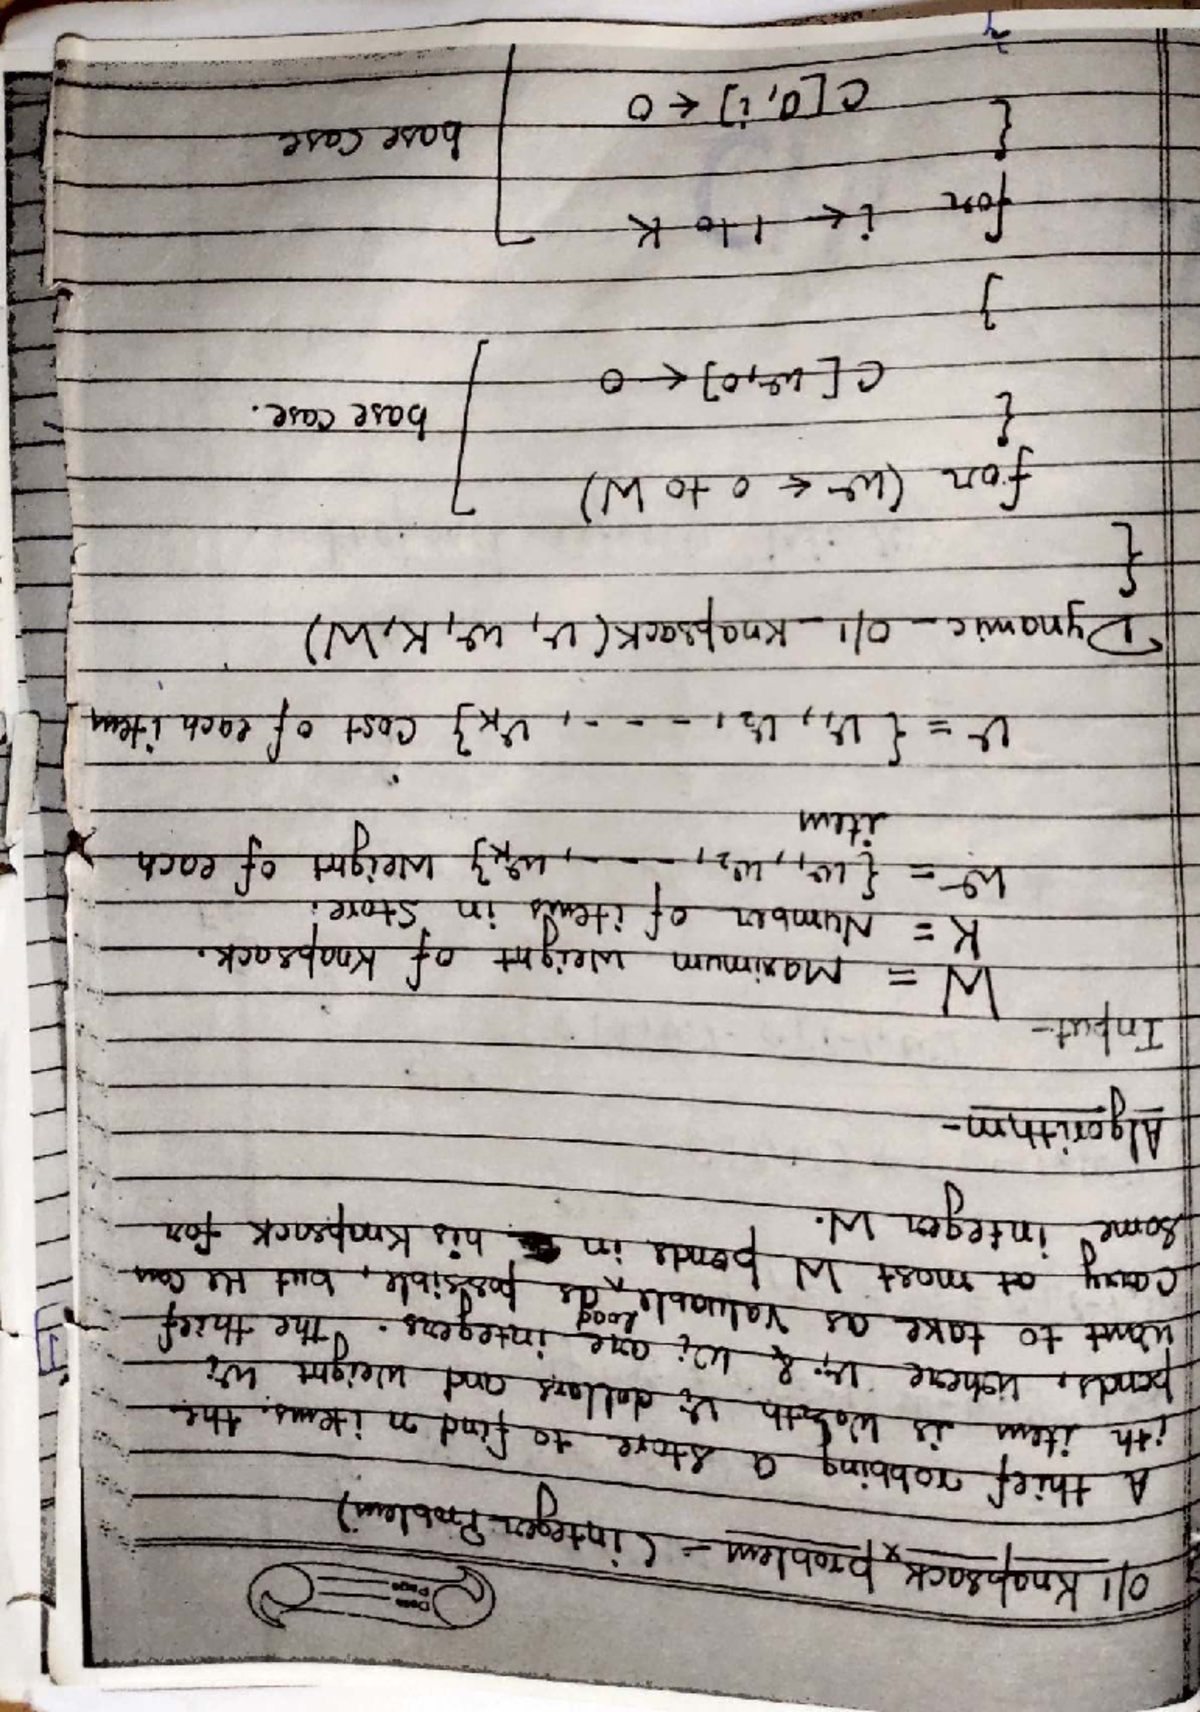 Date
Page
0/1 Knapsack problem - (integer Problem)
A thief robbing a store to find n items. the
ith item is worth vi dollars and weight wi
ponds, where vi & wi are integers. The thief
want to take as valuable load as possible, but He can
carry at most W ponds in his Knapsack for
some integer W.
Algorithm-
Input-
W = Maximum weight of Knapsack.
K = Number of items in store.
w = { w1, w2, - - - -, wk} weight of each
item
v = { v1, v2, - - - -, vk} cost of each item
Dynamic - 0/1 - Knapsack (v, w, K, W)
{
for (w ← 0 to W)
{
C[w,0] ← 0
base case.
}
for i ← 1 to K
{
C[0,i] ← 0
base case
}